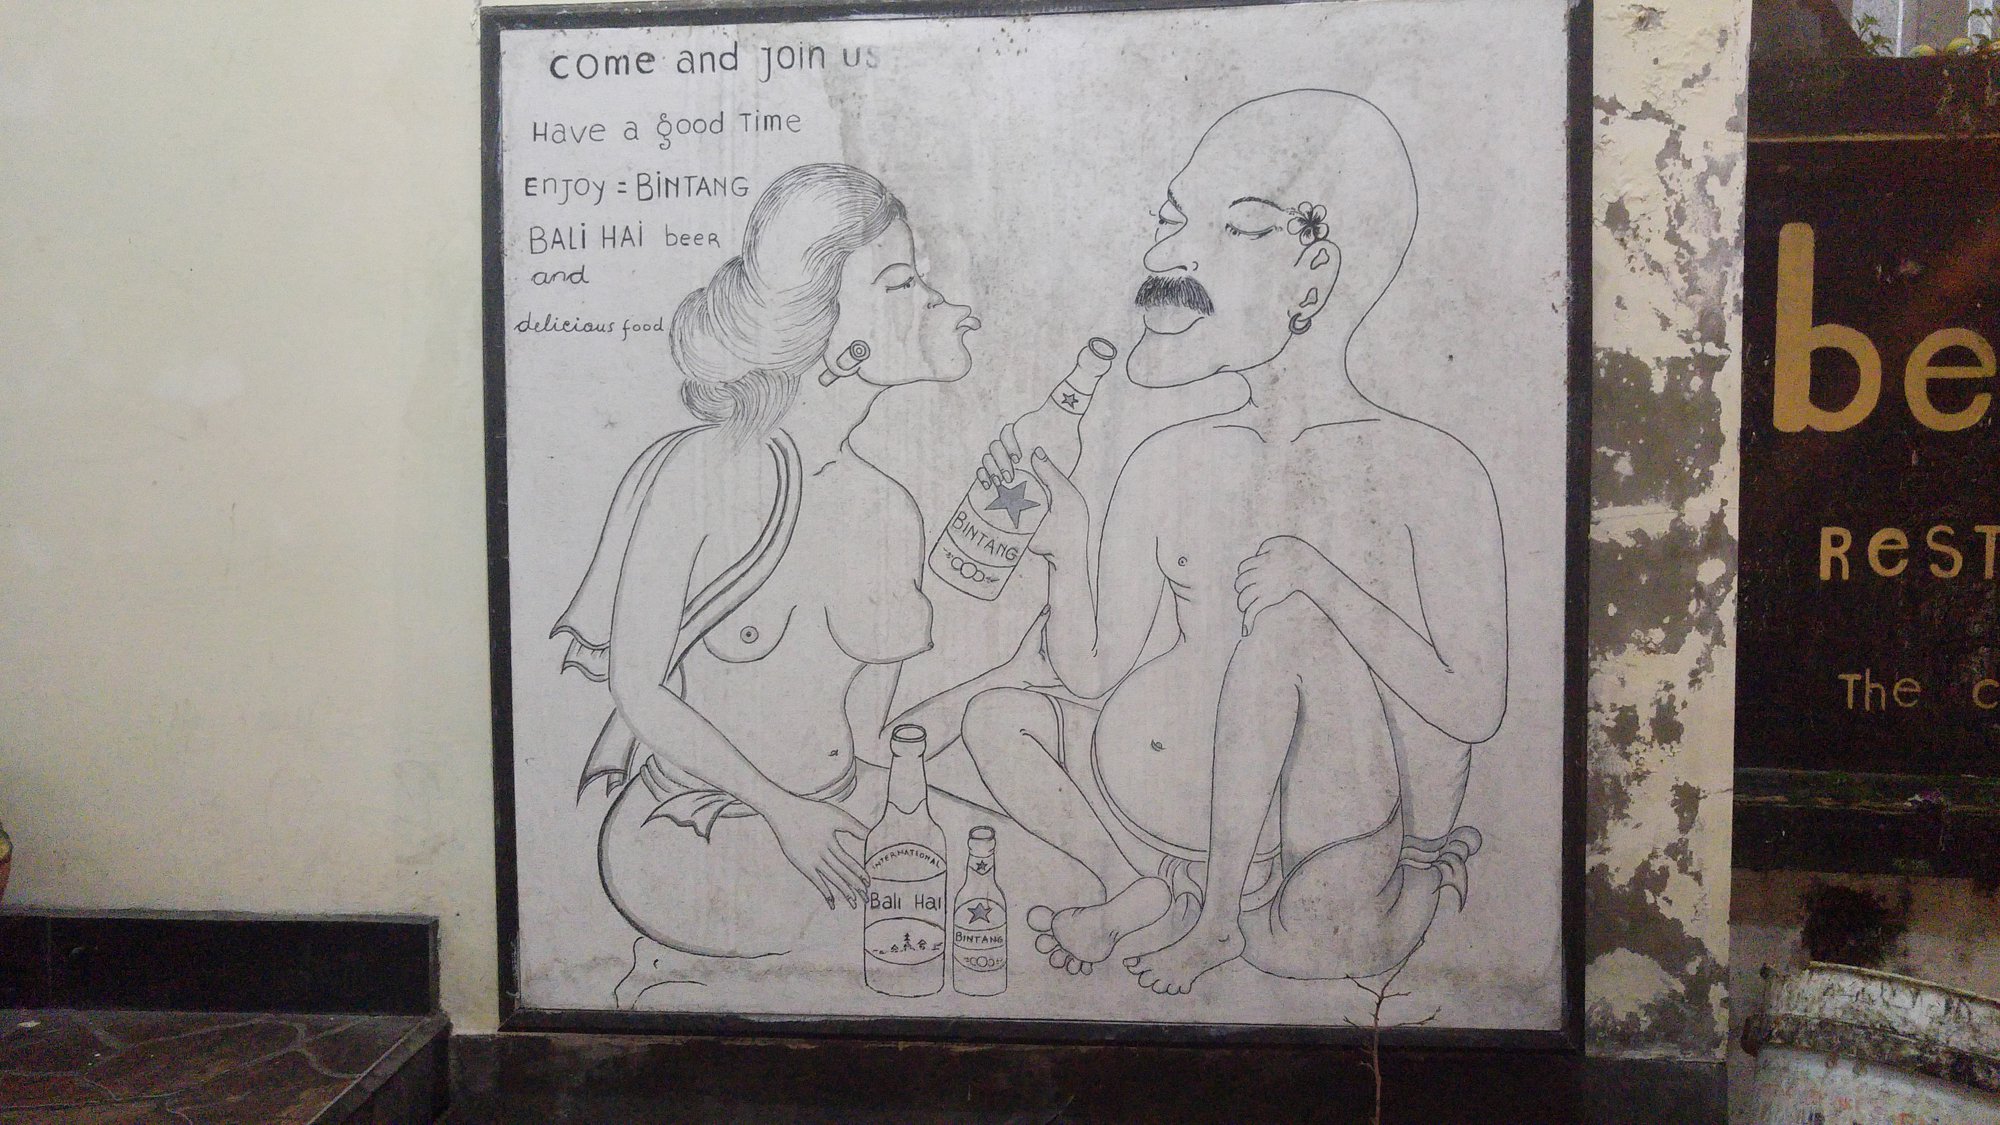 come and join us
Have a good Time
Enjoy = BiNTANG
BALi HAi beeR
and
delicious food
BINTANG
INTERNATIONAL
Bali Hai
BINTANG
be
ResT
The c